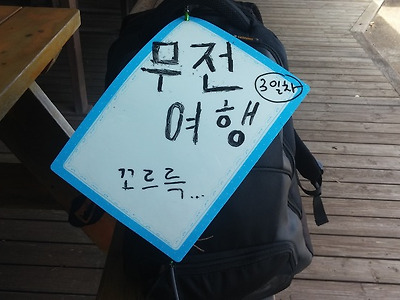 무전
3일차
여행
꼬르륵...